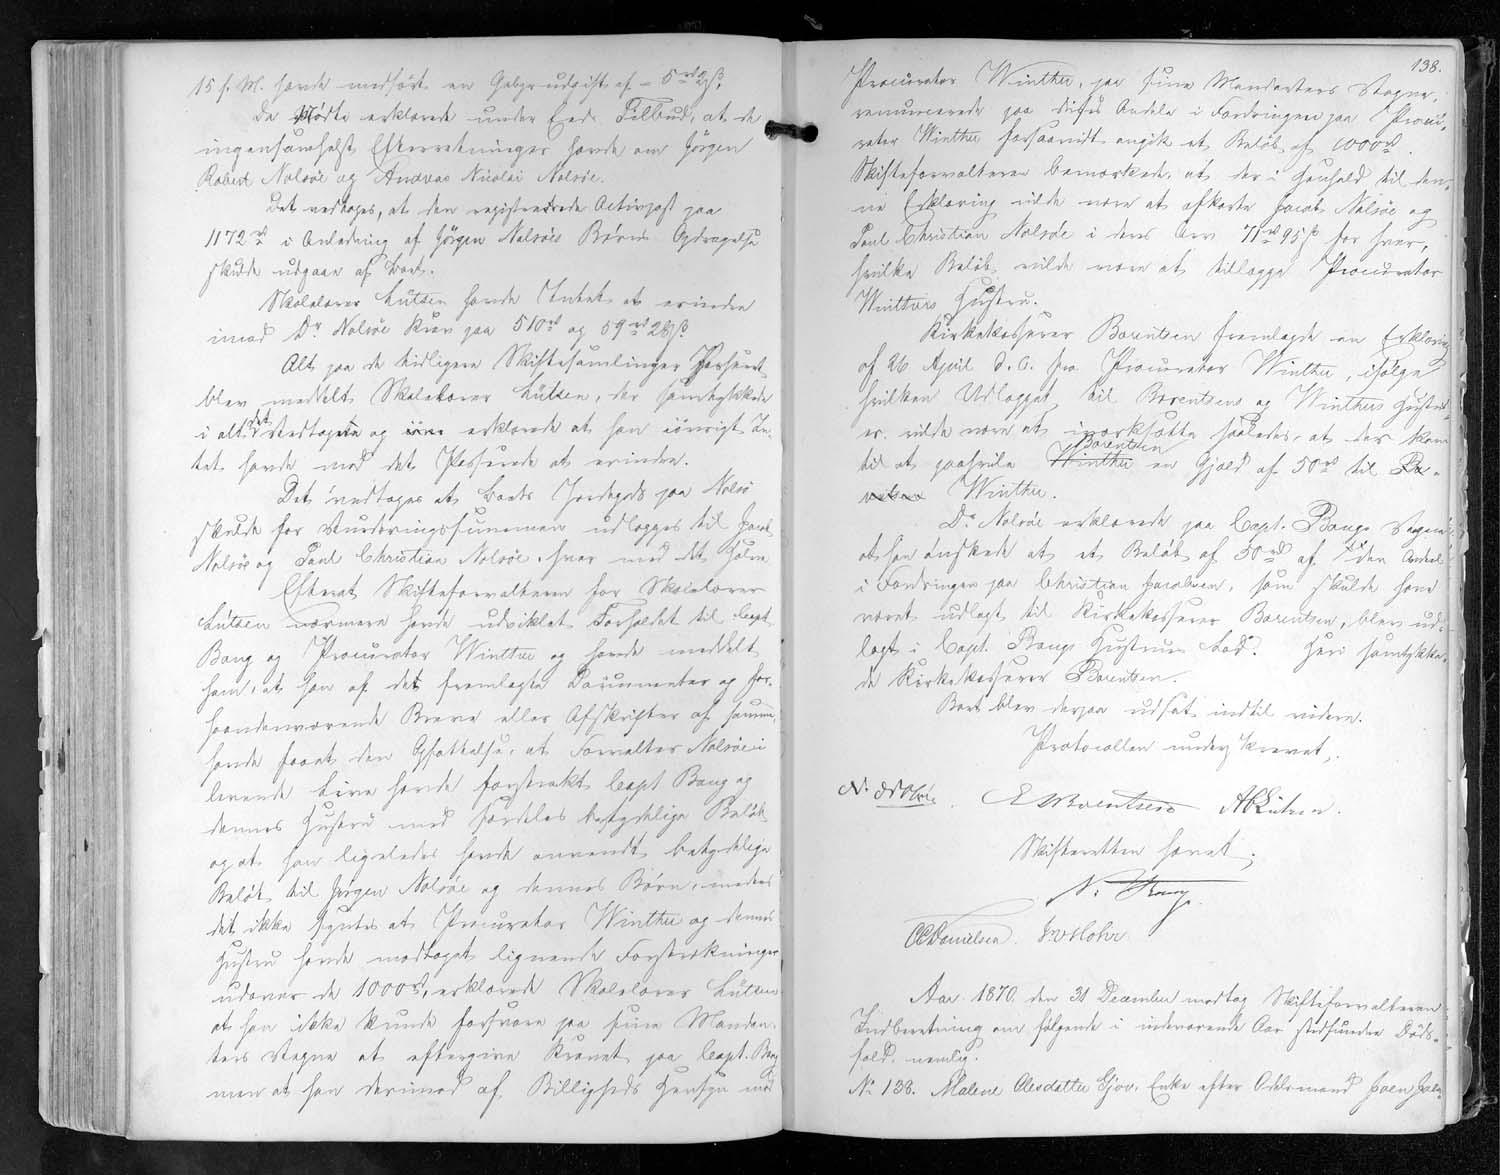 15 f. M. havde medført en Gebyrudgift af 5 rd 2 ß.
De Mødte erklærede under Eeds Tilbud, at de
ingensomhelst Efterretninger havde om Jörgen
Robert Nolsöe og Andreas Nicolai Nolsöe.
Det vedtoges, at den registrerede Activpost paa
1172 rd i Anledning af Jörgen Nolsöes Børns Opdragelse
skulde udgaae af Boet.
Skolelærer Lützen havde Intet at erindre
imod Dr Nolsöe Krav paa 510 rd og 59 rd 28 ß
Alt paa de tidligere Skiftesamlinger Passeret
blev meddelt Skolelærer Lützen, der samtykkede
i alt det Vedtagne og erklærede at han iövrigt In-
tet havde mod det Passerede at erindre.
Det vedtoges at Boets Jordegods paa Nolsö
skulde for Vurderingssummen udlægges til Jacob
Nolsöe og Poul Christian Nolsöe, hver med det Halve
Efterat Skifteforvalteren for Skolelærer
Lützen nærmere havde udviklet Forholdet til Capt.
Bang og Procurator Winther og havde meddelt
ham, at han af de fremlagte Documenter og for-
haandenværende Breve eller Afskrifter af samme,
havde faaet den Opfattelse, at Forvalter Nolsöe i
levende Live havde forstrakt Capt Bang og
dennes Hustru med særdeles betydelige Beløb
og at han ligeledes havde anvendt betydelige
Beløb til Jörgen Nolsöe og dennes Børn, medens
det ikke syntes at Procurator Winther og dennes
Hustru havde modtaget lignende Forstrækninger
udover de 1000 rd, erklærede Skolelærer Lützen
at han ikke kunde forsvare paa sine Mandan-
ters Vegne at eftergive Kravet paa Capt. Bang
men at han derimod af Billigheds Hensyn med
138.
Procurator Winther, paa sine Mandanters Vegne,
renuncerede paa disses Andele i Fordringen paa Procu-
rator Winther forsaavidt angik et Beløb af 1000 rd.
Skifteforvalteren bemærkede, at der i Henhold til den-
ne Erklæring vilde være at afkorte Jacob Nolsöe og
Poul Christian Nolsöe i deres Arv 71 rd 95 ß for hver,
hvilke Beløb vilde være at tillægge Procurator
Winthers Hustru.
Kirkekasserer Barentsen fremlagde en Erklæring
af 26 April d. A. fra Procurator Winther, ifølge
hvilken Udlægget til Barentsens og Winthers Hustru-
er vilde være at iværksætte saaledes, at der kom
til at paahvile Winther Barentsen en Gjæld af 50 rd til Ba-
rentsen Winther.
Dr Nolsöe erklærede paa Capt. Bangs Vegne,
at han ønskede at et Beløb af 50 rd af den Andeel
i Fordringen paa Christian Jacobsen, som skulde have
været udlagt til Kirkekasserer Barentsen, blev ud-
lagt i Capt. Bangs Hustrues Lod. Heri samtykke-
de Kirkekasserer Barentsen.
Boet blev derpaa udsat indtil videre.
Protocollen underskrevet.
N. Nolsöe. E Barentsen AC Lützen.
Skifteretten hævet.
N. Bang.
CC Danielsen. Mohr
Aar 1870 den 31 December modtog Skifteforvalteren
Indberetning om følgende i indeværende Aar stedfundne Døds-
fald nemlig.
No 138. Malene Olesdatter Gjov. Enke efter Odelsmand Joen Joen-